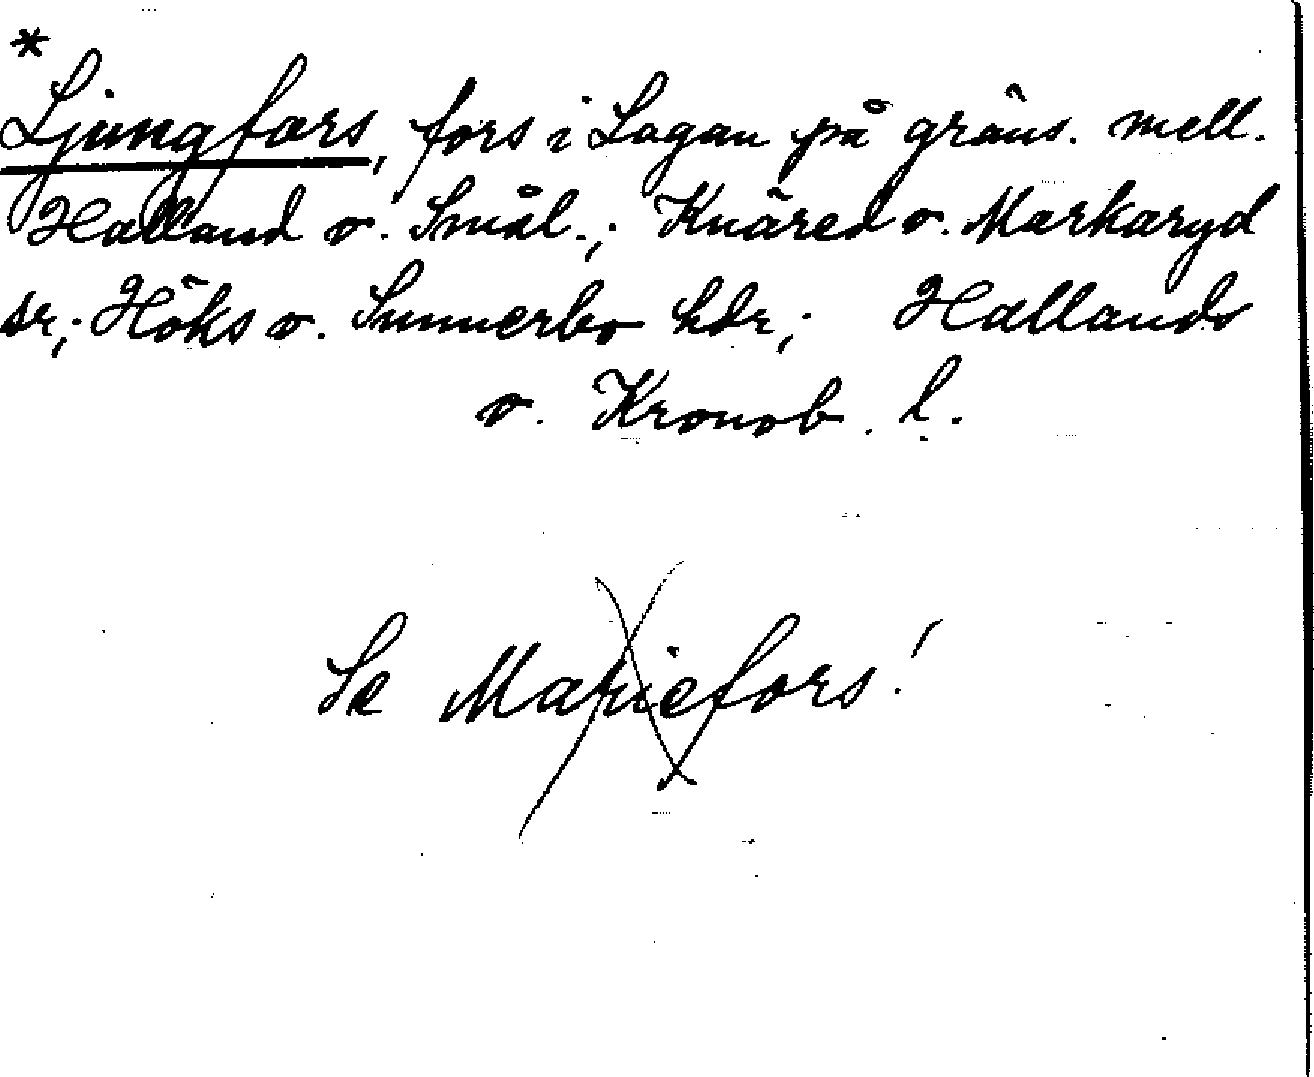 *
Ljungfors, fors i Lagan på gräns. mell.
Halland o. Smål.; Knäred o. Markaryd
sr; Höks o. Sunnerbo hdr; Hallands
o. Kronob. l.
Se Mariefors!